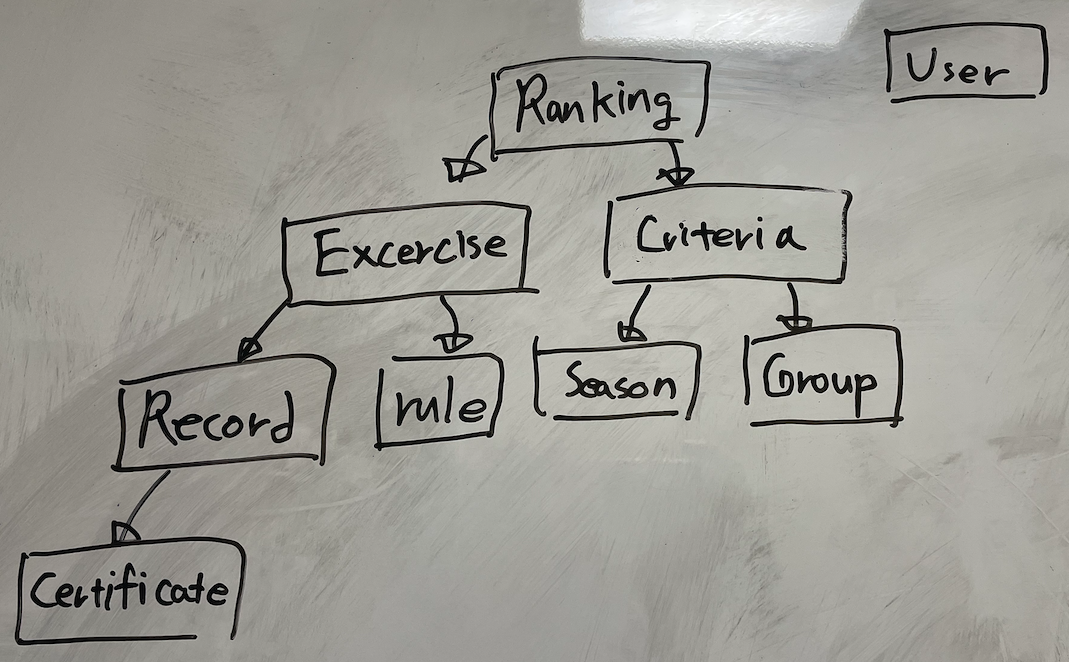 User
Ranking
Excercise
Criteria
Record
rule
Season
Group
Certificate